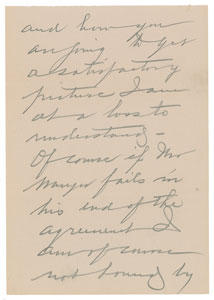 and how you
are going to get
a satisfactory
picture I am
at a loss to
understand –
Of course if Mr
Mayer fails in
his end of the
agreement I
am of course
not bound by